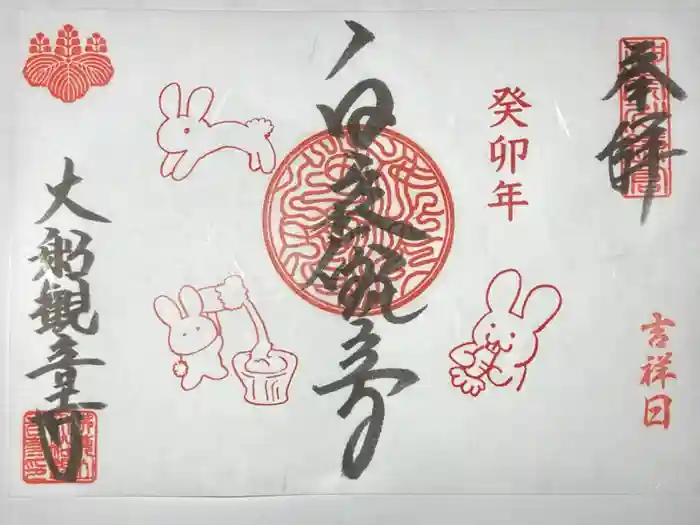 奉拝
吉祥日
癸卯年
白衣観音
大船観音寺